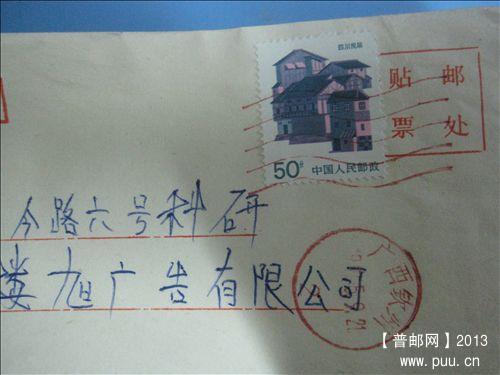 四川民居
50分 中国人民邮政
贴 邮
票 处
路六号科研
旭广告有限公司
广西钦州
【普邮网】2013
www.puu.cn